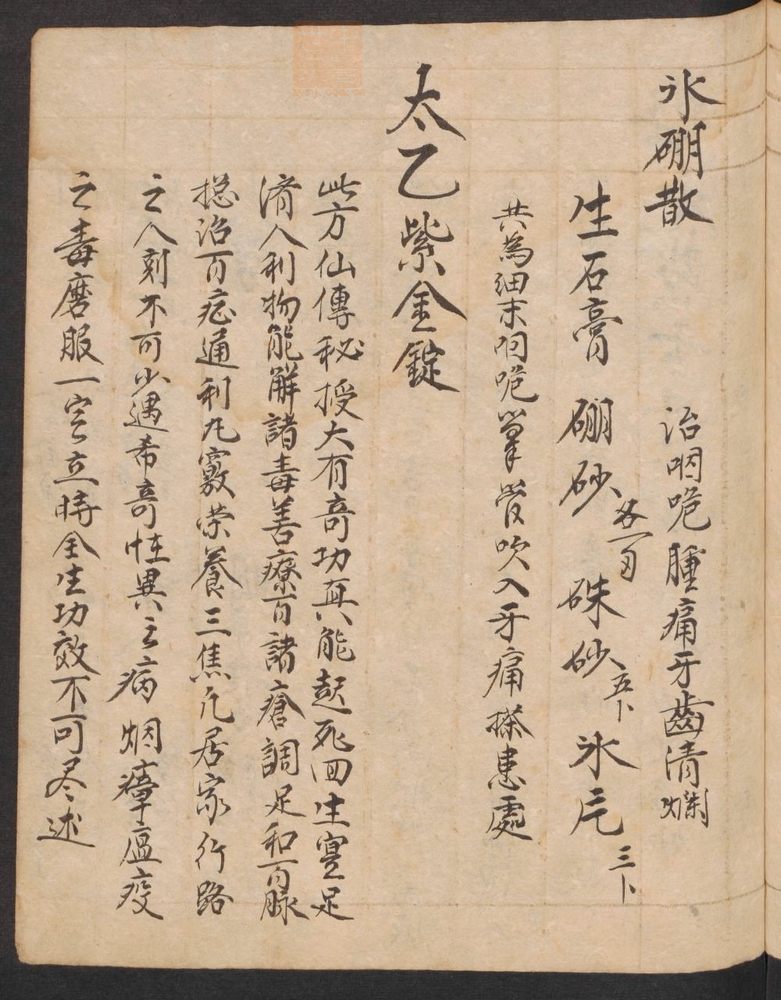 氷硼散　治咽喉腫痛牙齒清爛
生石膏　硼砂各一両　硃砂五卜　氷片三卜
共為細末咽喉筆管吹入牙痛搽患處
太乙紫金錠
此方仙傳秘授大有奇功真能起死回生寔足
済人利物能解諸毒善療百諸瘡調足和百脉
捴治百症通利九竅荣養三焦凡居家行路
之人刻不可少遇希奇怪異之病烟瘴瘟疫
之毒磨服一定立時全生功效不可尽述